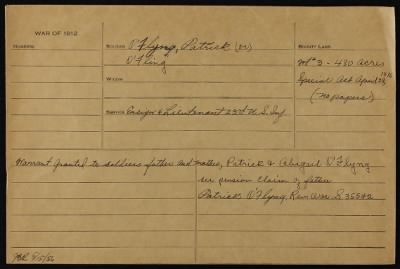 WAR OF 1812
NUMBERS
SOLDIER O'Flyng, Patrick (or)
O'Fling
BOUNTY LAND
Wt #3 - 480 acres
Special Act April 24, 1816
(No papers)
WIDOW
SERVICE Ensign & Lieutenant 23rd U.S. Inf
Warrant granted to soldiers father and mother, Patrick & Abigail O'Flyng
see pension claim of father
Patrick O'Flyng, Rem War S. 35542
9/5/56